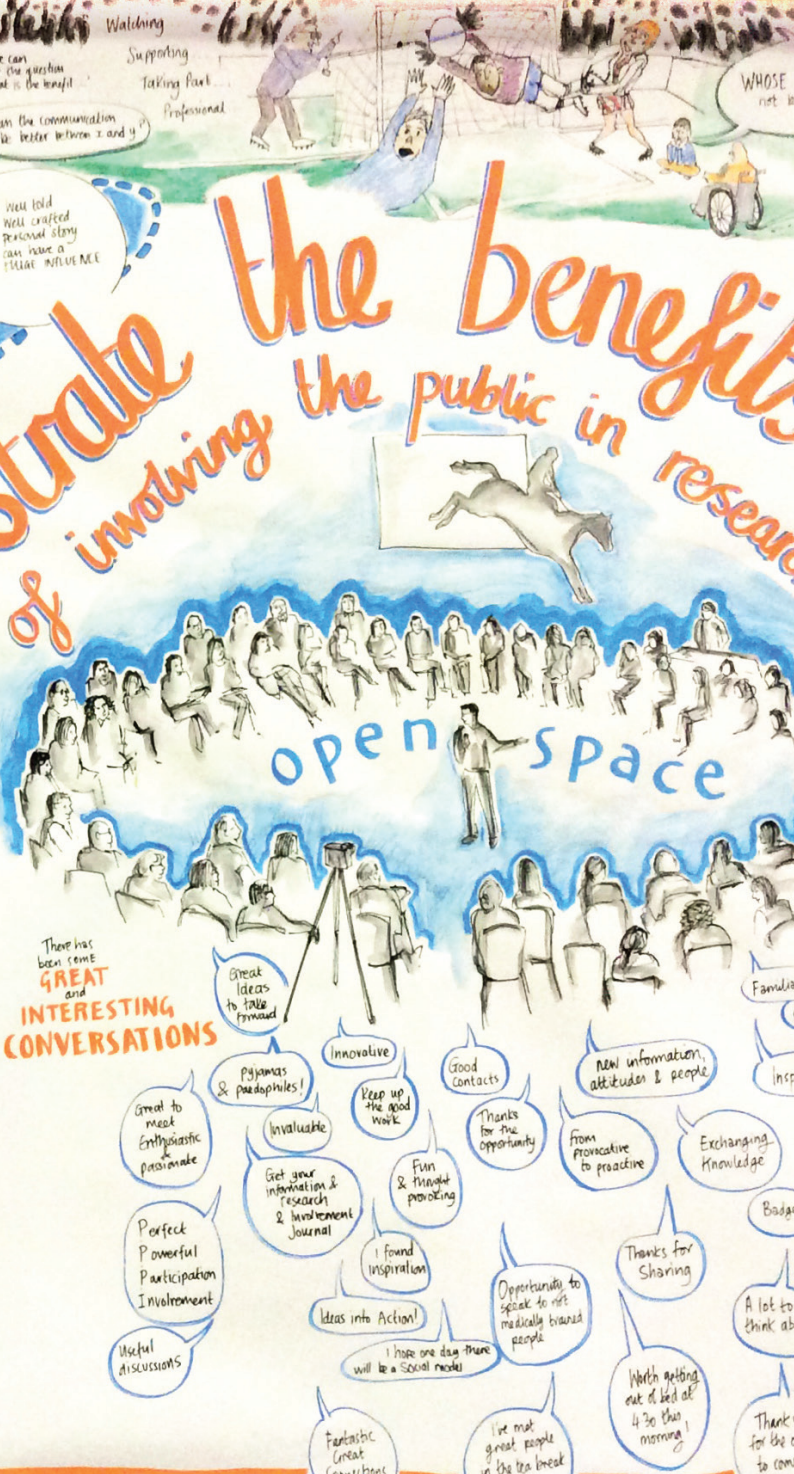 Watching
Supporting
Taking Part...
Professional
e can
the question
at is the benefit
an the communication
ke better between x and y?
WHOSE
not b
Well told
Well crafted
personal story
can have a
HUGE INFLUENCE
strate the benefits
of involving the public in research
open space
There has
been some
GREAT
and
INTERESTING
CONVERSATIONS
Great
Ideas
to take
forward
Pyjamas
& paedophiles!
Innovative
Good
contacts
new information,
attitudes & people
Familia
Insp
Great to
meet
Enthusiastic
&
passionate
Invaluable
Keep up
the good
work
Thanks
for the
opportunity
From
provocative
to proactive
Exchanging
Knowledge
Get your
information &
research
& Involvement
Journal
Fun
& thought
provoking
Badge
Perfect
Powerful
Participation
Involvement
I found
inspiration
Thanks for
Sharing
Ideas into Action!
Opportunity to
speak to not
medically trained
people
A lot to
think ab
Useful
discussions
I hope one day there
will be a social model
Worth getting
out of bed at
4 30 this
morning!
Fantastic
Great
I've met
great people
in the tea break
Thank
for the
to com